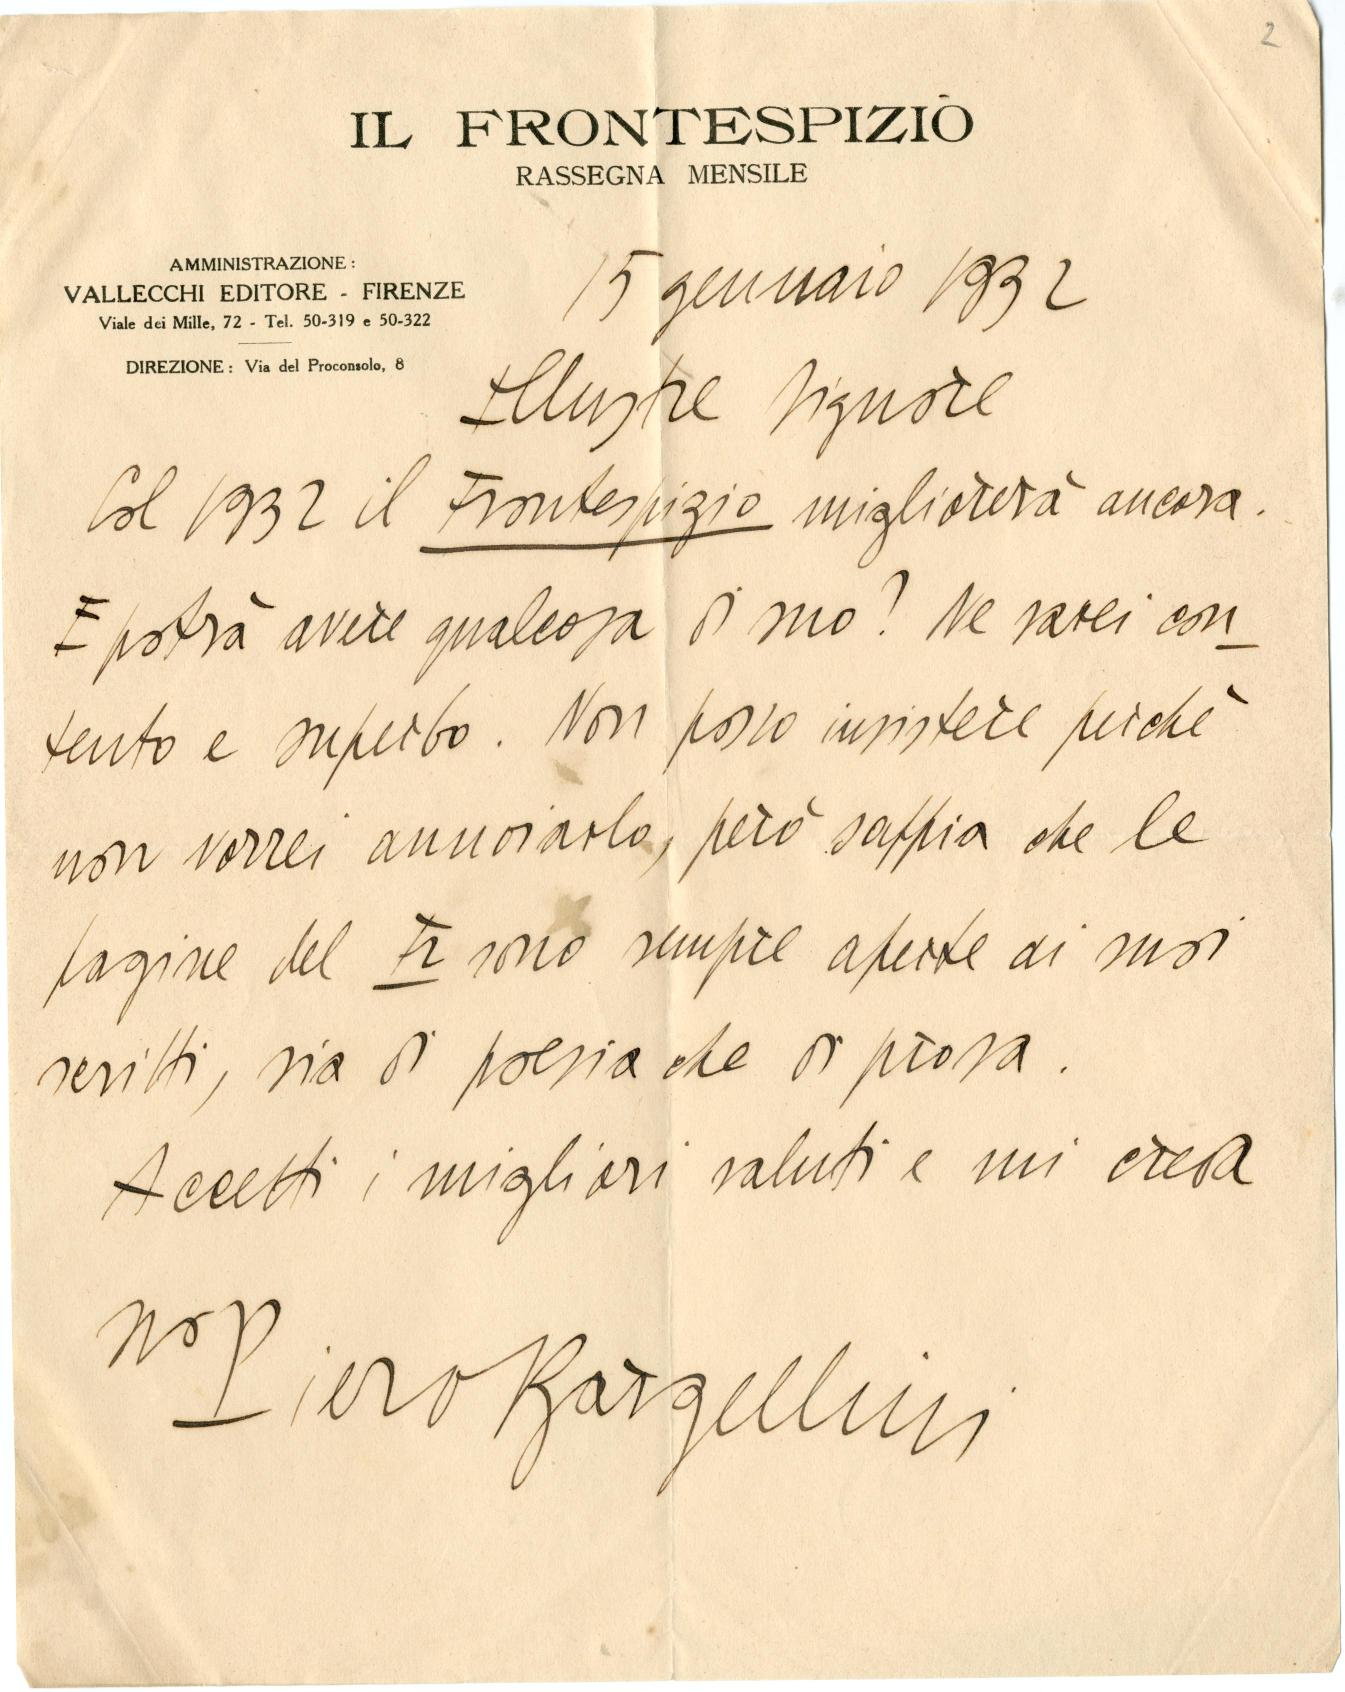 2
IL FRONTESPIZIO
RASSEGNA MENSILE
AMMINISTRAZIONE:
VALLECCHI EDITORE - FIRENZE
Viale dei Mille, 72 - Tel. 50-319 e 50-322
DIREZIONE: Via del Proconsolo, 8
15 gennaio 1932
Illustre Signore
Col 1932 il Frontespizio migliorerà ancora.
E potrà avere qualcosa di suo? Ne sarei con
tento e superbo. Non posso insistere perchè
non vorrei annoiarlo, però sappia che le
pagine del Fr sono sempre aperte ai suoi
scritti, sia di poesia che di prosa.
Accetti i migliori saluti e mi creda
suo Piero Bargellini